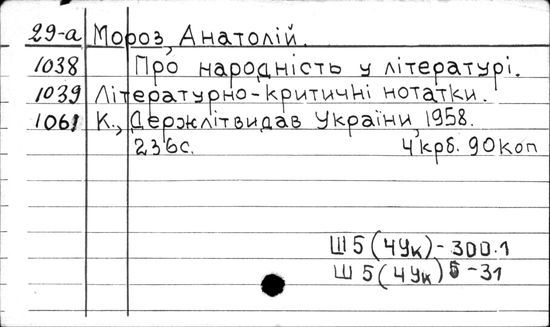 29-а Мороз, Анатолій.
1038 Про народність у літературі.
1039 Літературно-критичні нотатки.
1061 К., Держлітвидав України, 1958.
236с. 4крб. 90коп
Ш5(4Ук)-300.1
Ш5(4Ук)6-31